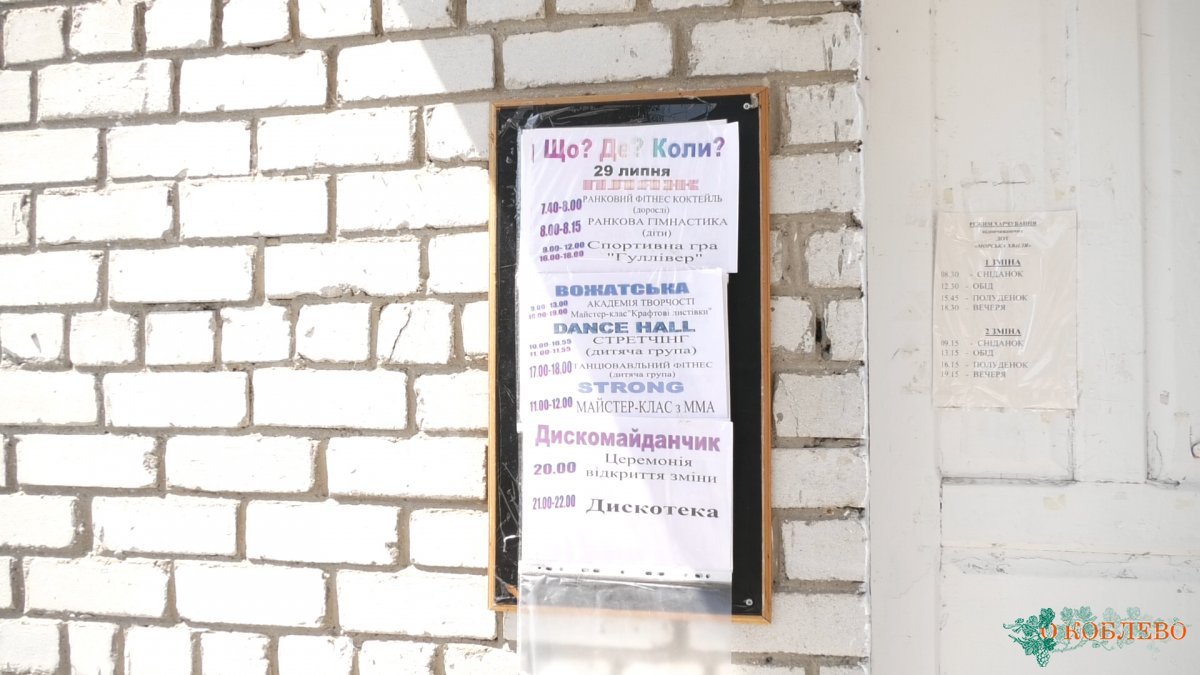 Що? Де? Коли?
29 липня
ПЛЯЖ
7.40-8.00 РАНКОВИЙ ФІТНЕС КОКТЕЙЛЬ
(дорослі)
8.00-8.15 РАНКОВА ГІМНАСТИКА
(діти)
9.00-12.00 Спортивна гра
16.00-18.00 "Гуллівер"
ВОЖАТСЬКА
9.00-13.00 АКАДЕМІЯ ТВОРЧОСТІ
16.00-19.00 Майстер-клас "Крафтові листівки"
DANCE HALL
10.00-10.55 СТРЕТЧІНГ
11.00-11.55 (дитяча група)
17.00-18.00 ТАНЦЮВАВЛЬНИЙ ФІТНЕС
(дитяча група)
STRONG
11.00-12.00 МАЙСТЕР-КЛАС з ММА
Дискомайданчик
20.00 Церемонія
відкриття зміни
21.00-22.00 Дискотека
РЕЖИМ ХАРЧУВАННЯ
відпочиваючих
ДОТ
«МОРСЬКА ХВИЛЯ»
1 ЗМІНА
08.30 - СНІДАНОК
12.30 - ОБІД
15.45 - ПОЛУДЕНОК
18.30 - ВЕЧЕРЯ
2 ЗМІНА
09.15 - СНІДАНОК
13.15 - ОБІД
16.15 - ПОЛУДЕНОК
19.15 - ВЕЧЕРЯ
О КОБЛЕВО